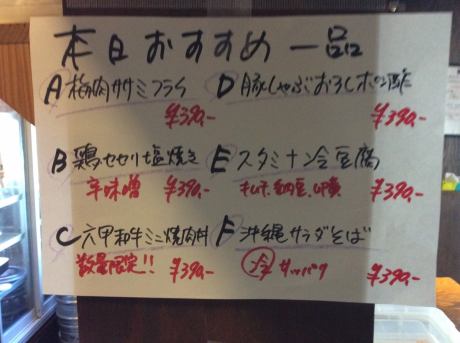 本日おすすめ一品
A 梅肉ササミフライ
¥390,-
B 鶏セセリ塩焼き
辛味噌 ¥390,-
C 六甲和牛ミニ焼肉丼
数量限定!! ¥390,-
D 豚しゃぶおろしポン酢
¥390,-
E スタミナ冷豆腐
キムチ、納豆、卵黄 ¥390,-
F 沖縄サラダそば
冷 サッパリ ¥390,-